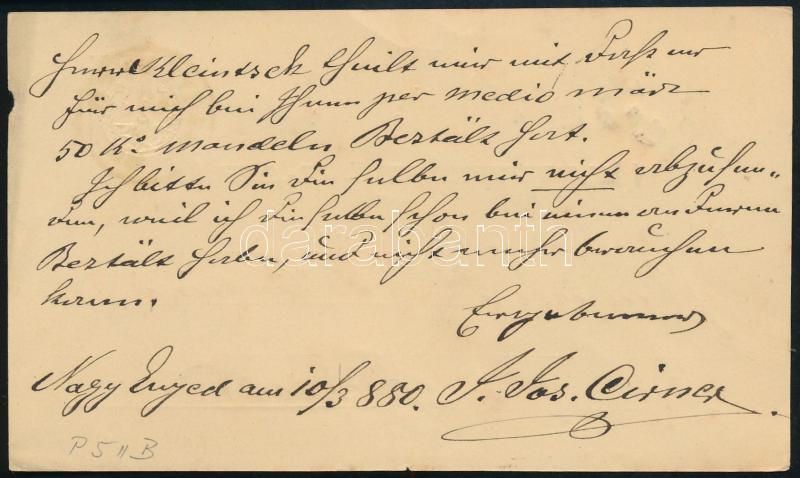 Herr Kleintsek theilt mir mit daß er
für mich bei Ihnen per Medio März
50 Ko Mandeln Bestält hat.
Ich bitte Sie dieselbe mir nicht abzusen=
den, weil ich dieselbe schon bei einem anderen
Bestält habe, und nicht mehr brauchen
kann.
darabanth
Ergebenst
Nagy Enyed am 10/3 880. J. Jos. Cirner
P 5 II B